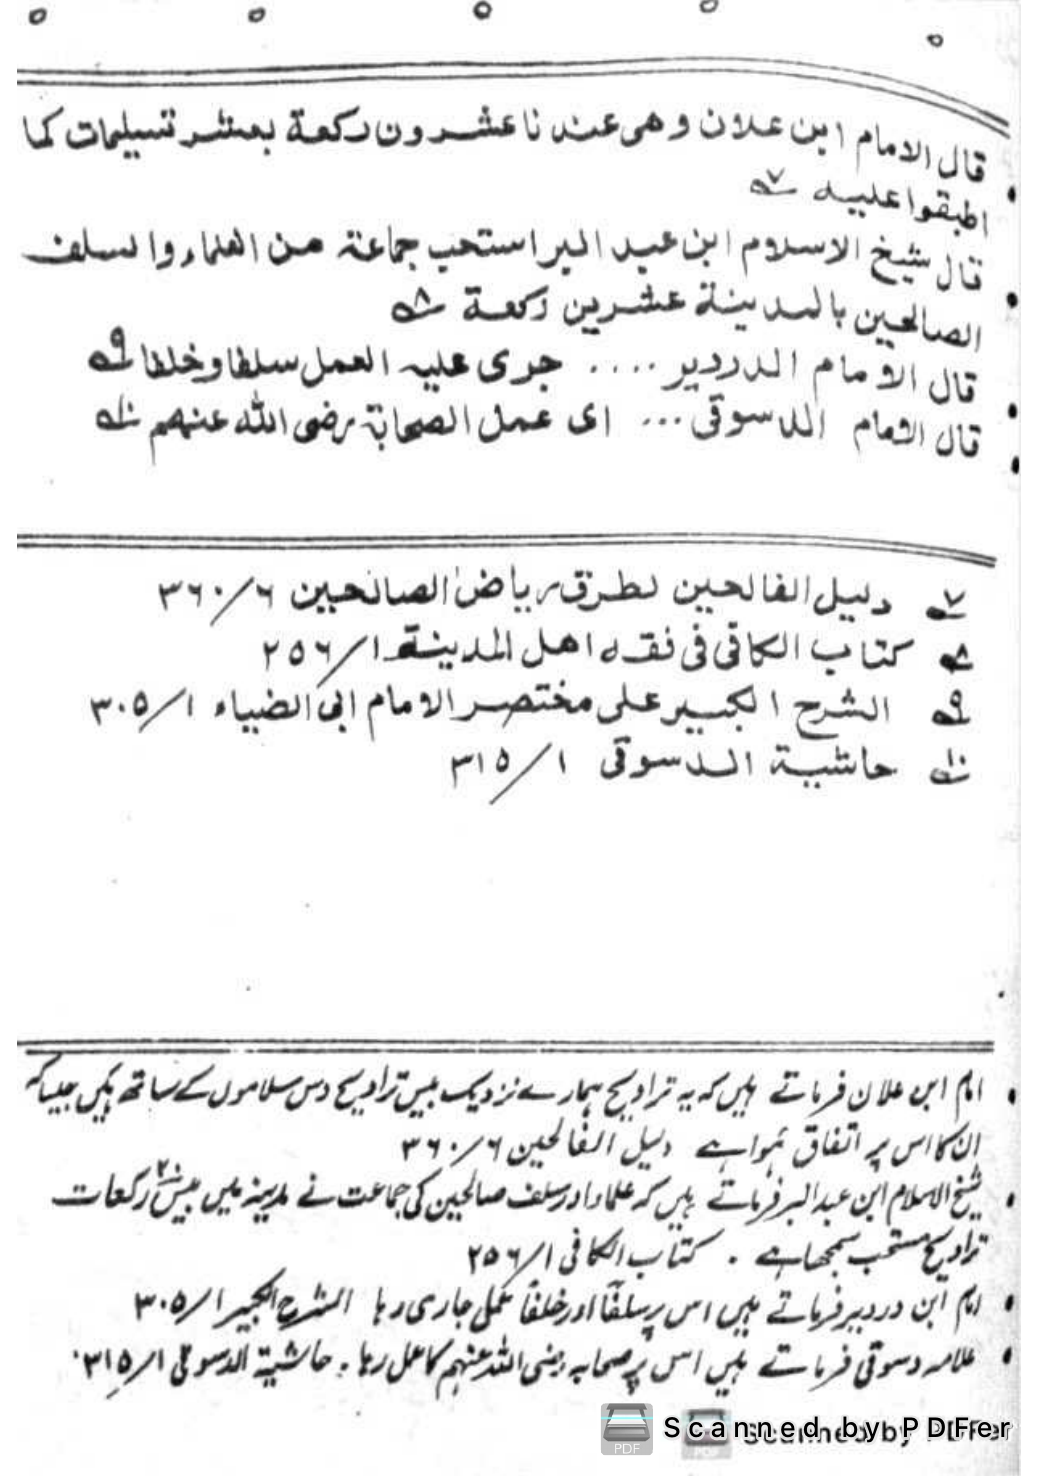 قال الامام ابن علان وهی عندنا عشرون رکعة بعشر تسیلمات کما
اطبقوا علیه ؎۷
قال شیخ الاسلام ابن عبد البر استحب جماعة من العلماء والسلف
الصالحین بالمدینة عشرین رکعة ؎۸
قال الامام الدردیر .... جری علیه العمل سلفا وخلفا ؎۹
قال الامام الدسوقی ... ای عمل الصحابة رضی الله عنهم ؎۱۰
؎۷ دلیل الفالحین لطرق ریاض الصالحین ۶/۳۶۰
؎۸ کتاب الکافی فی فقه اهل المدینة ۱/۲۵۶
؎۹ الشرح الکبیر علی مختصر الامام ابی الضیاء ۱/۳۰۵
؎۱۰ حاشیة الدسوقی ۱/۳۱۵
• امام ابن علان فرماتے ہیں کہ یہ تراویح ہمارے نزدیک بیس تراویح دس سلاموں کے ساتھ ہیں جیسا کہ
ان کا اس پر اتفاق ہوا ہے دلیل الفالحین ۶/۳۶۰
• شیخ الاسلام ابن عبدالبر فرماتے ہیں کہ علماء اور سلف صالحین کی جماعت نے مدینہ میں بیس ۲۰ رکعات
تراویح مستحب سمجھا ہے . کتاب الکافی ۱/۲۵۶
• امام ابن دردیر فرماتے ہیں اس پر سلفًا اور خلفًا عمل جاری رہا الشرح الکبیر ۱/۳۰۵
• علامہ دسوقی فرماتے ہیں اس پر صحابہ رضی اللہ عنہم کا عمل رہا . حاشیة الدسوقی ۱/۳۱۵
PDF Scanned by PDFFer
Scanned by PDFFer